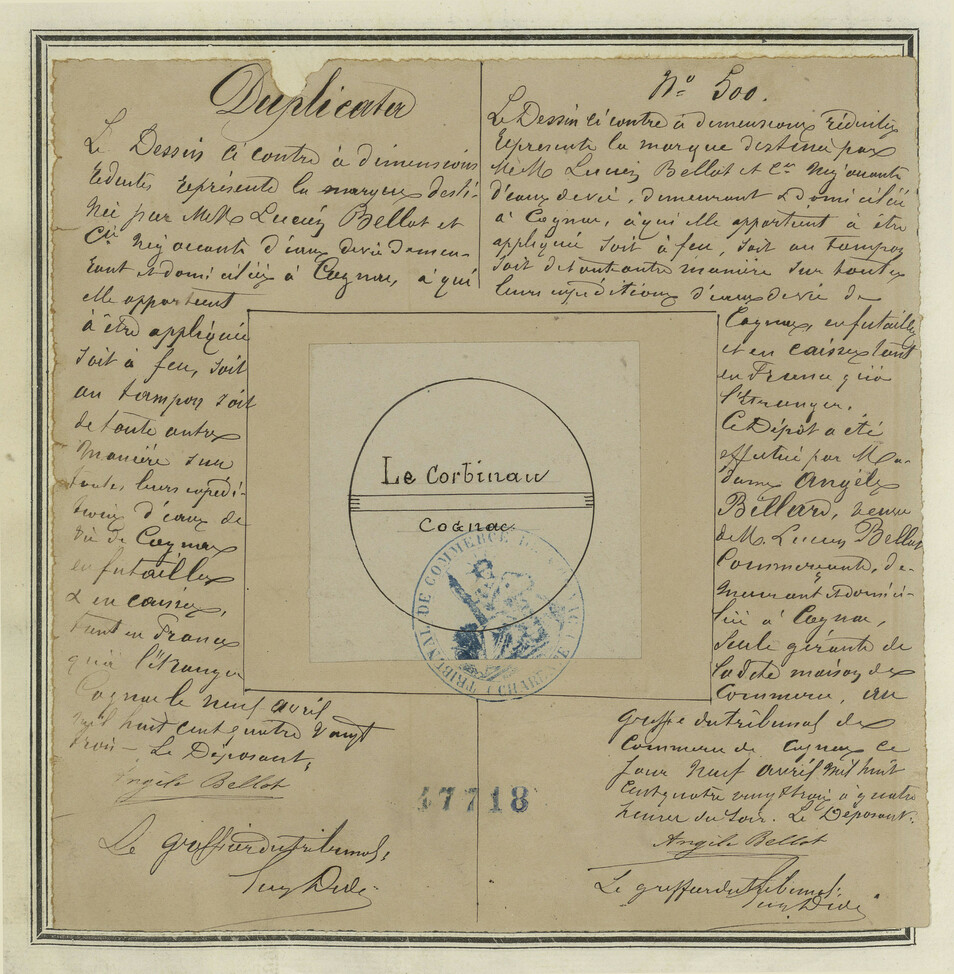 Duplicata
Le Dessin ci contre à dimensions
réduites représente la marque desti-
née par MM Lucien Bellot et
Cie Négociants d'eaux de vie demeu-
rant et domiciliés à Cognac, à qui
elle appartient
à être appliquée
soit à feu, soit
au tampon soit
de toute autre
manière sur
toutes leurs expédi-
tions d'eaux de
vie de Cognac
en futailles
& en caisses,
tant en France
qu'à l'étranger
Cognac le neuf avril
mil huit cent quatre vingt
trois — Le Déposant,
Angèle Bellot
Le greffier du tribunal,
No 500.
Le Dessin ci contre à dimensions réduites
représente la marque destinée par
MM. Lucien Bellot et Cie Négociants
d'eaux de vie, demeurant & domiciliés
à Cognac, à qui elle appartient à être
appliquée soit à feu, soit au tampon
soit de toute autre manière sur toutes
leurs expéditions d'eaux de vie de
Cognac, en futailles
et en caisses tant
en France qu'à
l'Étranger.
Ce Dépôt a été
effectué par Ma-
dame Angèle
Billard, veuve
de M. Lucien Bellot
Commerçante, de-
meurant & domici-
liée à Cognac,
seule gérante de
la dite maison de
Commerce, au
greffe du tribunal de
Commerce de Cognac ce
jour neuf avril mil huit
cent quatre vingt trois à quatre
heures du soir. Le Déposant.
Angèle Bellot
Le greffier du tribunal.
Le Corbinau
Cognac
TRIBUNAL DE COMMERCE DE COGNAC (CHARENTE)
47718